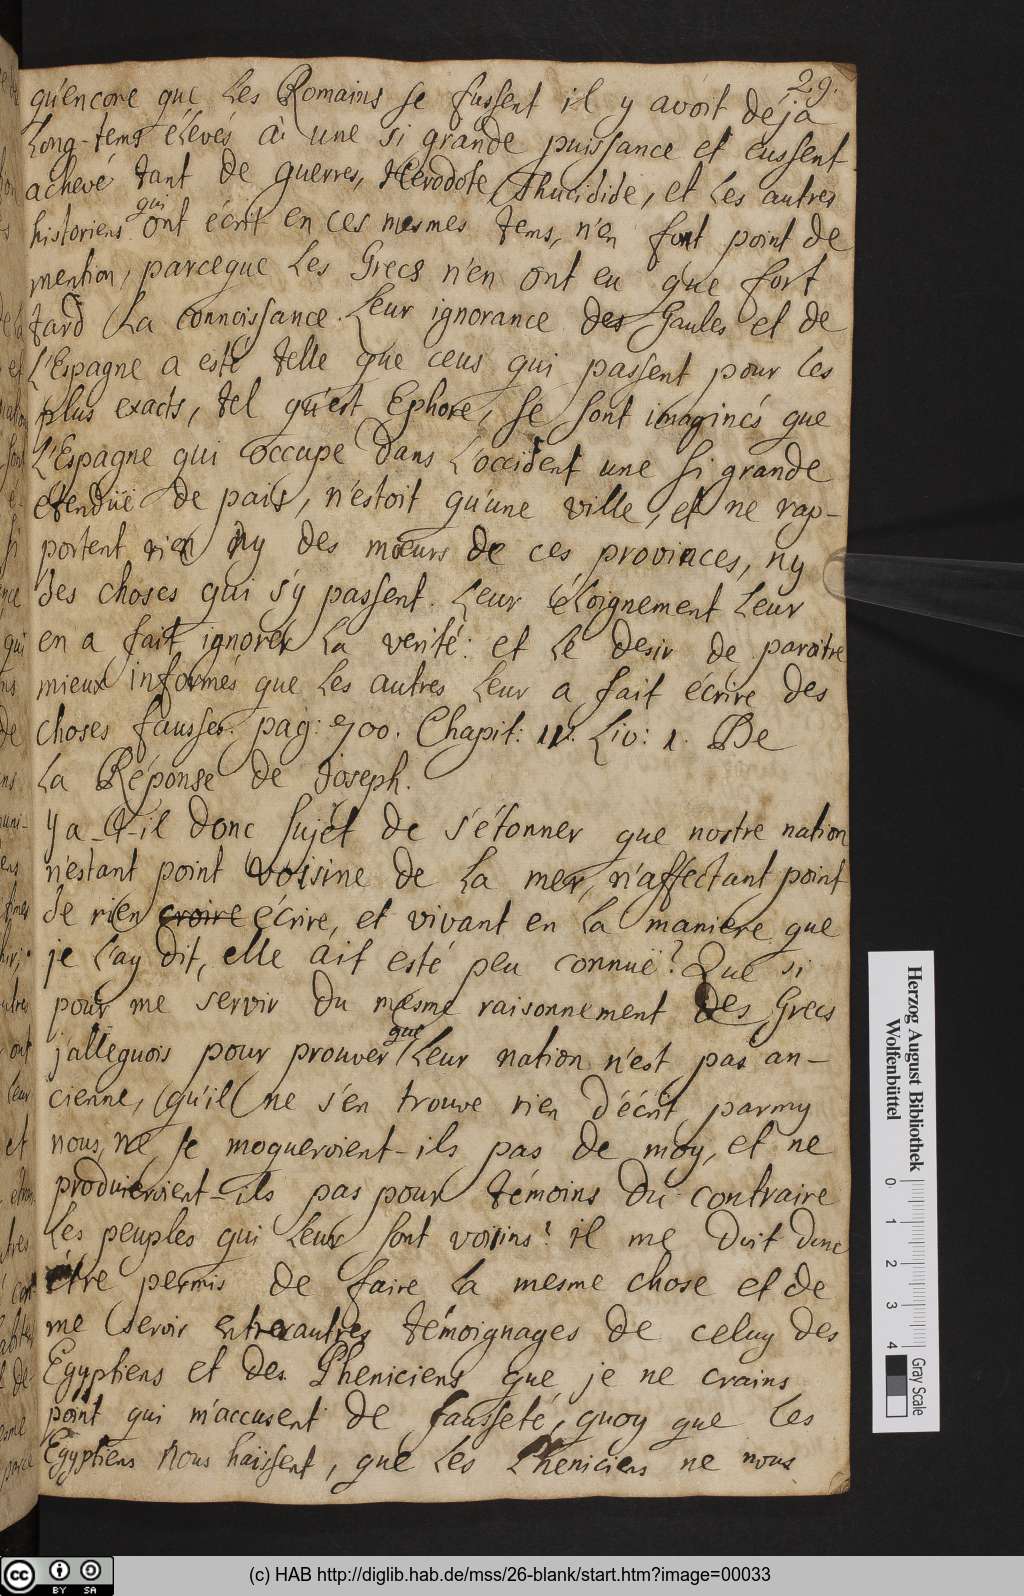 29.
qu'encore que les Romains se fussent il y avoit déja
long-tems élevés à une si grande puissance et eussent
achevé tant de guerres, Herodote, Thucidide, et les autres
historiens qui ont écrit en ces mesmes tems, n'en font point de
mention, parceque les Grecs n'en ont eu que fort
tard la connoissance. Leur ignorance des Gaules et de
L'Espagne a esté telle que ceus qui passent pour les
plus exacts, tel qu'est Ephore, se sont imaginés que
L'Espagne qui occupe dans L'occident une si grande
etenduë de païs, n'estoit qu'une ville, et ne rap-
portent rien ny des mœurs de ces provinces, ny
des choses qui s'y passent. Leur éloignement leur
en a fait ignorer la verité: et le desir de paroitre
mieux informés que les autres leur a fait écrire des
choses fausses. pag: 700. Chapit: IV. Liv: 1. De
la Réponse de Joseph.
Y a-t-il donc sujet de s'étonner que nostre nation
n'estant point voisine de la mer, n'affectant point
de rien croire écrire, et vivant en la maniere que
je l'ay dit, elle ait esté peu connuë? Que si
pour me servir du mesme raisonnement des Grecs
j'alleguois pour prouver que leur nation n'est pas an-
cienne, qu'il ne s'en trouve rien d'écrit parmy
nous, ne se moqueroient-ils pas de moy, et ne
produiroient-ils pas pour témoins du contraire
les peuples qui leur sont voisins? il me doit donc
être permis de faire la mesme chose et de
me servir entre autres témoignages de celuy des
Egyptiens et des Pheniciens que je ne crains
point qui m'accusent de fausseté, quoy que les
Egyptiens nous haïssent, que les Pheniciens ne nous
Herzog August Bibliothek
Wolfenbüttel
0 1 2 3 4
Gray Scale
cc BY SA
(c) HAB http://diglib.hab.de/mss/26-blank/start.htm?image=00033